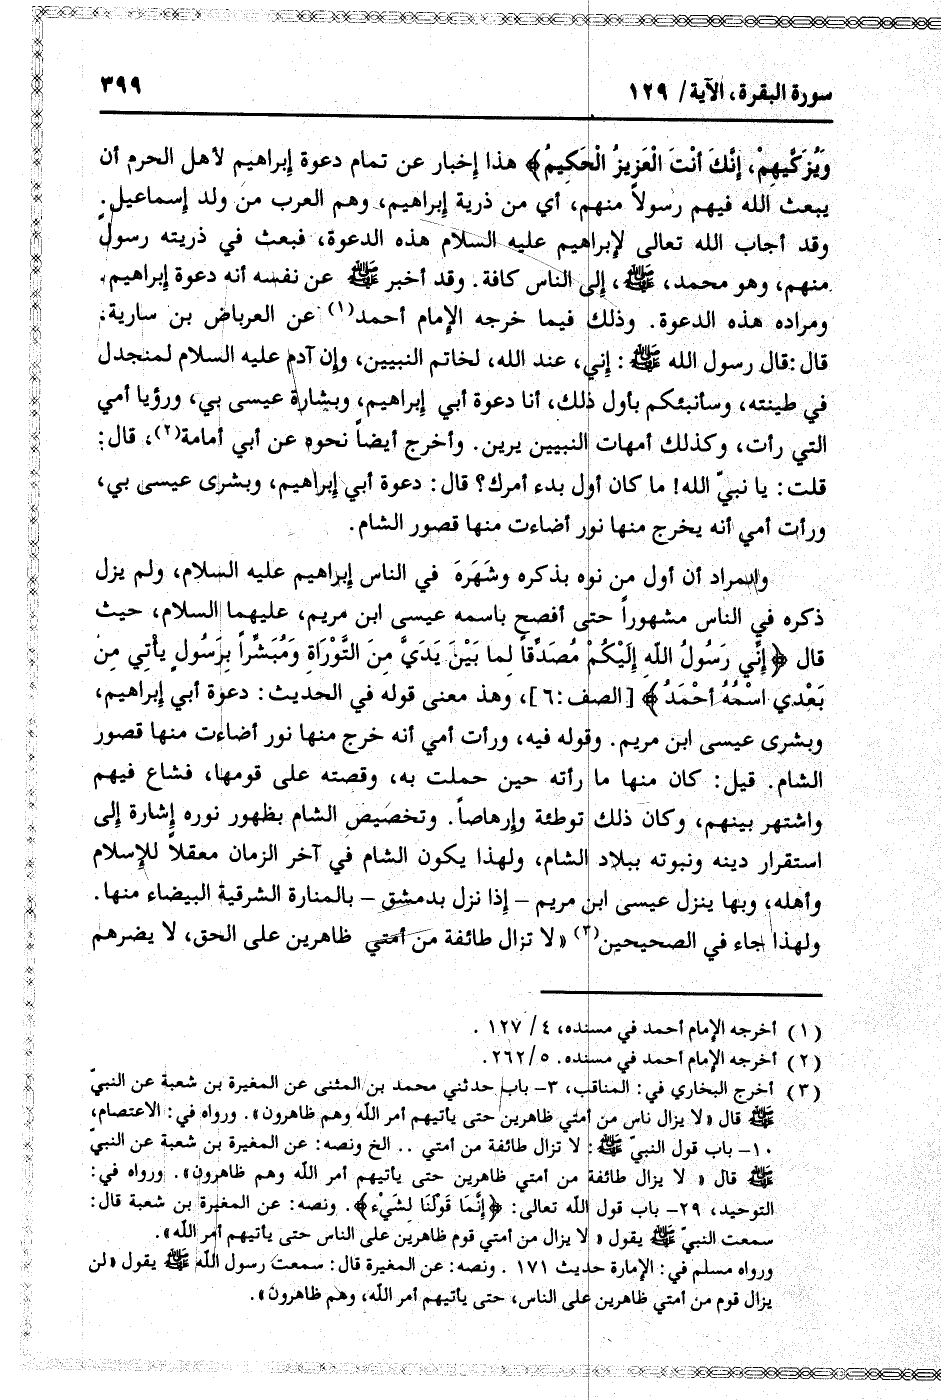 سورة البقرة، الآية/ ١٢٩
٣٩٩
وَيُزَكِّيهِمْ، إِنَّكَ أَنْتَ الْعَزِيزُ الْحَكِيمُ﴾ هذا إخبار عن تمام دعوة إبراهيم لأهل الحرم أن
يبعث الله فيهم رسولاً منهم، أي من ذرية إبراهيم، وهم العرب من ولد إسماعيل.
وقد أجاب الله تعالى لإبراهيم عليه السلام هذه الدعوة، فبعث في ذريته رسولٌ
منهم، وهو محمد، ﷺ، إلى الناس كافة. وقد أخبر ﷺ عن نفسه أنه دعوة إبراهيم.
ومراده هذه الدعوة. وذلك فيما خرجه الإمام أحمد(١) عن العرباض بن سارية.
قال :قال رسول الله ﷺ : إني، عند الله، لخاتم النبيين، وإن آدم عليه السلام لمنجدل
في طينته، وسأنبئكم بأول ذلك، أنا دعوة أبي إبراهيم، وبشارة عيسى بي، ورؤيا أمي
التي رأت، وكذلك أمهات النبيين يرين. وأخرج أيضاً نحوه عن أبي أمامة(٢)، قال:
قلت: يا نبيّ الله! ما كان أول بدء أمرك؟ قال: دعوة أبي إبراهيم، وبشرى عيسى بي،
ورأت أمي أنه يخرج منها نور أضاءت منها قصور الشام.
والمراد أن أول من نوه بذكره وشَهَرَهَ في الناس إبراهيم عليه السلام، ولم يزل
ذكره في الناس مشهوراً حتى أفصح باسمه عيسى ابن مريم، عليهما السلام، حيث
قال ﴿إِنِّي رَسُولُ اللّهِ إِلَيْكُمْ مُصَدِّقاً لِما بَيْنَ يَدَيَّ مِنَ التَّوْرَاةِ وَمُبَشِّراً بِرَسُولٍ يأْتِي مِن
بَعْدي اسْمُهُ أَحْمَدُ﴾ [الصف:٦]، وهذ معنى قوله في الحديث: دعوة أبي إبراهيم،
وبشرى عيسى ابن مريم. وقوله فيه، ورأت أمي أنه خرج منها نور أضاءت منها قصور
الشام. قيل: كان منها ما رأته حين حملت به، وقصته على قومها، فشاع فيهم
واشتهر بينهم، وكان ذلك توطئة وإرهاصاً. وتخصيص الشام بظهور نوره إشارة إلى
استقرار دينه ونبوته ببلاد الشام، ولهذا يكون الشام في آخر الزمان معقلاً للإسلام
وأهله، وبها ينزل عيسى ابن مريم – إذا نزل بدمشق – بالمنارة الشرقية البيضاء منها.
ولهذا جاء في الصحيحين(٣) « لا تزال طائفة من أمتي ظاهرين على الحق، لا يضرهم
(١) أخرجه الإمام أحمد في مسنده، ٤/ ١٢٧ .
(٢) أخرجه الإمام أحمد في مسنده. ٥/ ٢٦٢ .
(٣) أخرج البخاري في: المناقب، ٣– باب حدثني محمد بن المثنى عن المغيرة بن شعبة عن النبيّ
ﷺ قال « لا يزال ناس من أمتي ظاهرين حتى يأتيهم أمر اللّه وهم ظاهرون». ورواه في: الاعتصام،
١٠– باب قول النبيّ ﷺ: لا تزال طائفة من أمتي .. الخ ونصه: عن المغيرة بن شعبة عن النبيّ
ﷺ قال « لا يزال طائفة من أمتي ظاهرين حتى يأتيهم أمر اللّه وهم ظاهرون». ورواه في:
التوحيد، ٢٩– باب قول اللّه تعالى: ﴿إِنَّمَا قَوْلُنَا لِشَيْء﴾. ونصه: عن المغيرة بن شعبة قال:
سمعت النبيّ ﷺ يقول « لا يزال من أمتي قوم ظاهرين على الناس حتى يأتيهم أمر اللّه».
ورواه مسلم في: الإمارة حديث ١٧١ . ونصه: عن المغيرة قال: سمعت رسول اللّه ﷺ يقول «لن
يزال قوم من أمتي ظاهرين على الناس، حتى يأتيهم أمر اللّه، وهم ظاهرون».